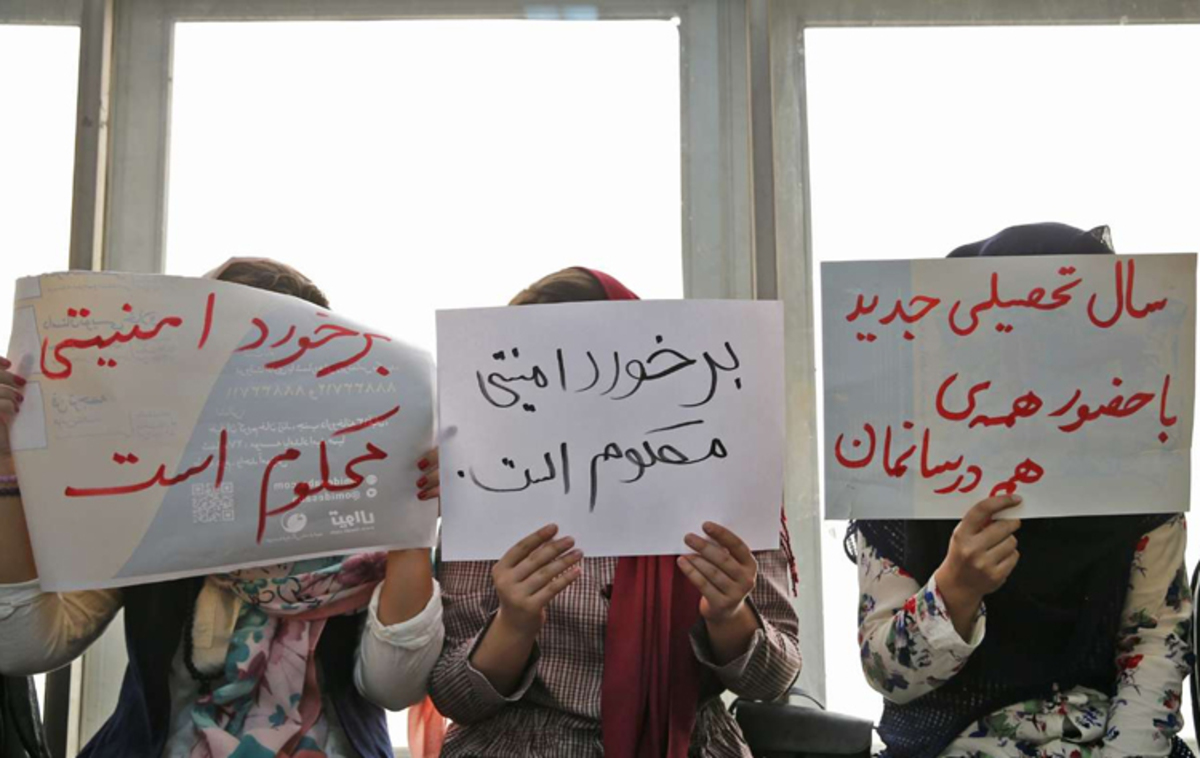 سال تحصیلی جدید
با حضور همه‌ی
هم درسانمان
برخورد امنیتی
محکوم است.
برخورد امنیتی
محکوم است